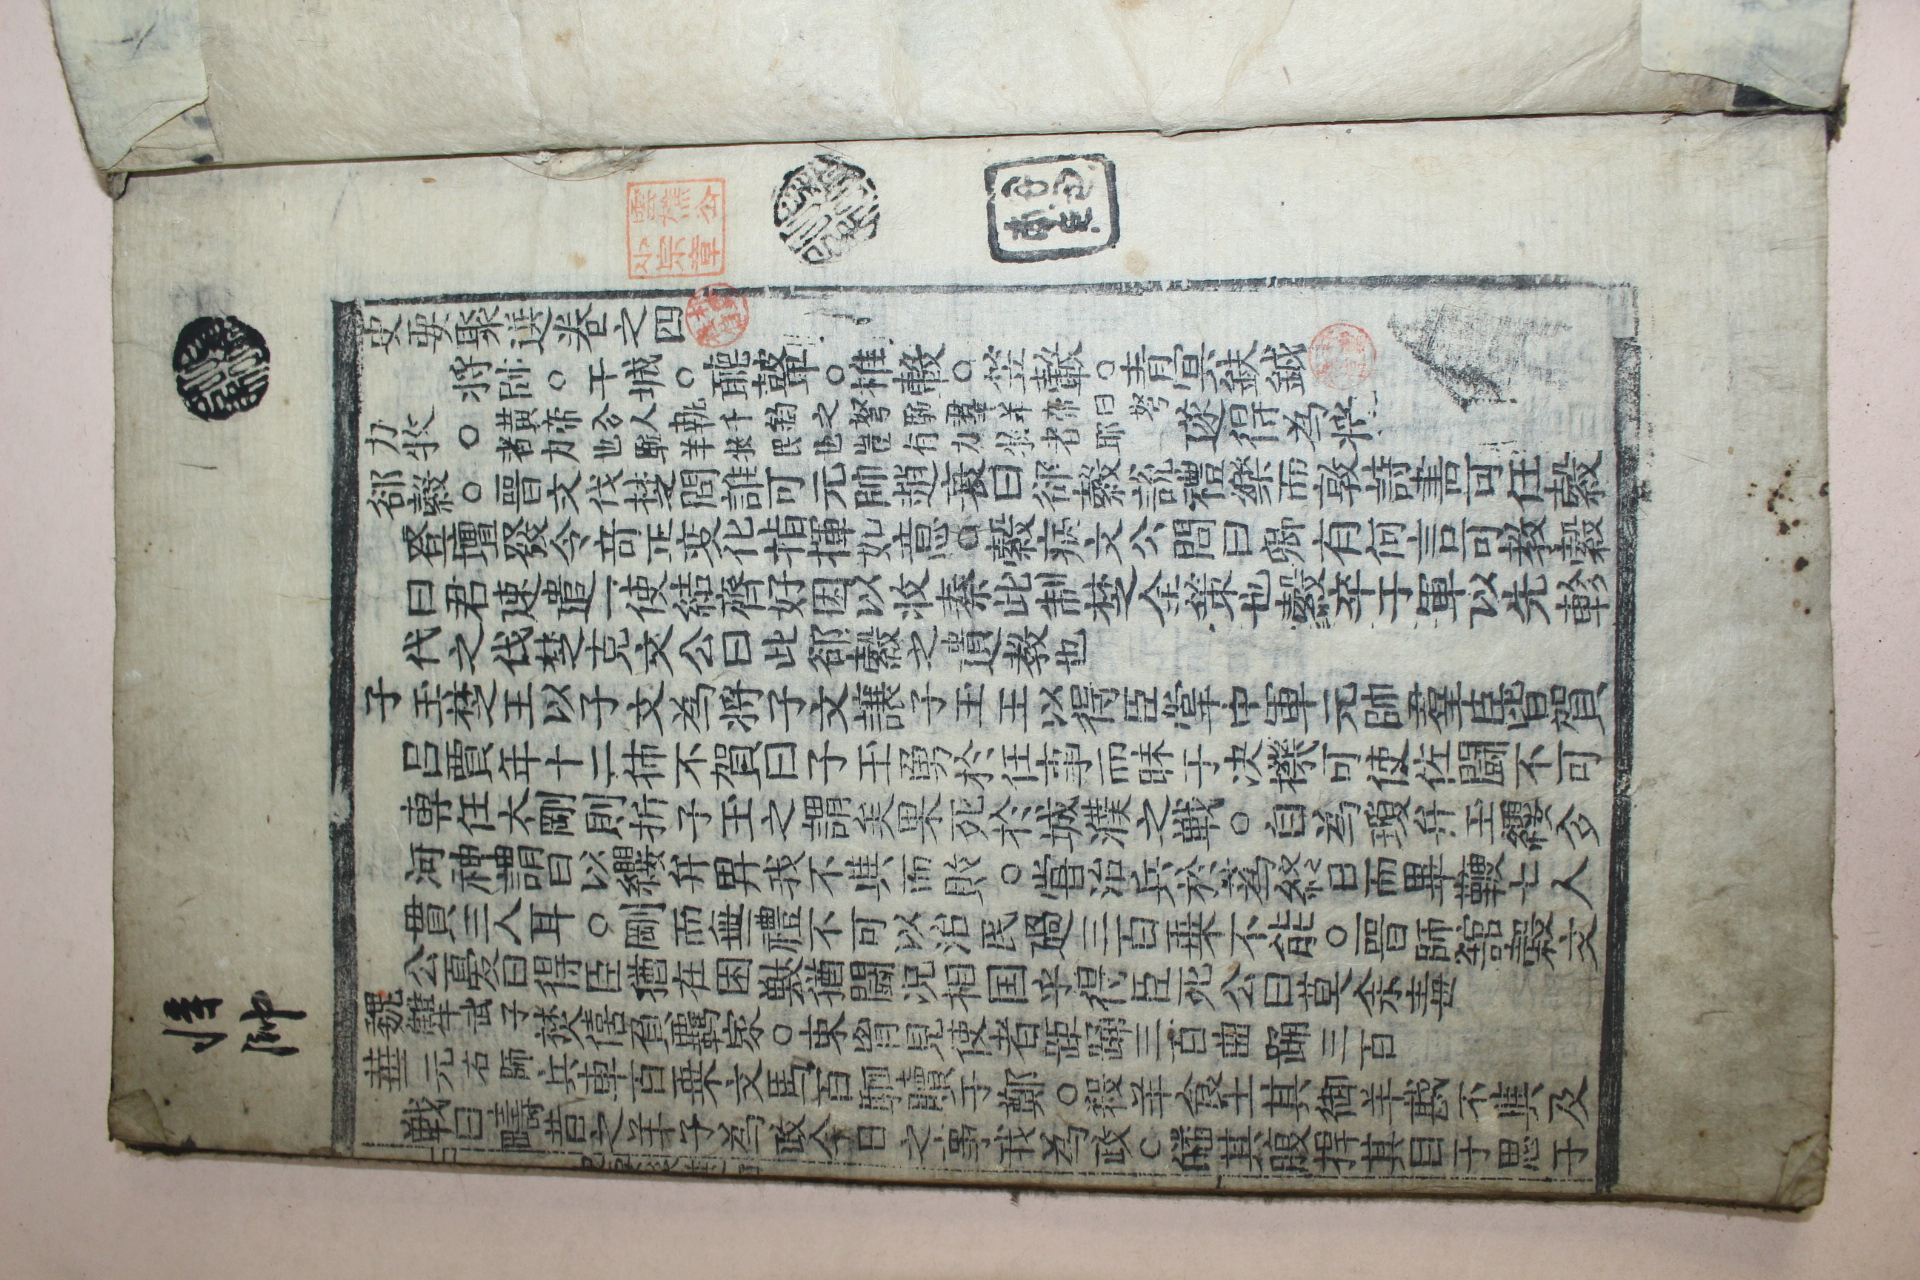 將帥
史要聚選卷之四
將帥○干城○聽鼙○推轂○笠轂○青冥鈇鉞
力牧○黃帝夢人執千鈞之弩驅羣羊帝曰弩者力也驅羊牧民也豈有力牧者耶遂得為將
郤縠○晋文伐楚問誰可元帥趙衰曰郤縠說禮樂而敦詩書可任縠
登壇發令奇正変化指揮如意○縠病文公問曰卿有何言可教縠
曰君速遣一使結齊好因以收秦此制楚全策也縠卒于軍以先軫
代之伐楚克文公曰此郤縠之遺教也
子玉楚王以子文為將子文讓子玉王以得臣掌中軍元帥羣臣皆賀
呂賈年十二彿不賀曰子玉勇於任事而昧于决機可使佐闘不可
專任太剛則折子玉之謂矣果死於城濮之戦○自為瓊弁玉纓夕
河神謂曰以纓弁畀我不與而敗○嘗治兵於蒍終日而畢鞭七人
貫三人耳○剛而無禮不可以治民過三百乗不能○晋師舘穀文
公憂曰得臣猶在困獸猶闘况相国乎得臣死公曰莫余毒
魏犨武子焚僖負羈家○束胷見使者距踊三百曲踊三百
華元右師兵車百乗文馬百駟贖于鄭○殺羊食士其御羊斟不與及
戦曰疇昔之羊子為政今日之事我為政○皤其腹捍其目于思于
雲樵公
小宗章